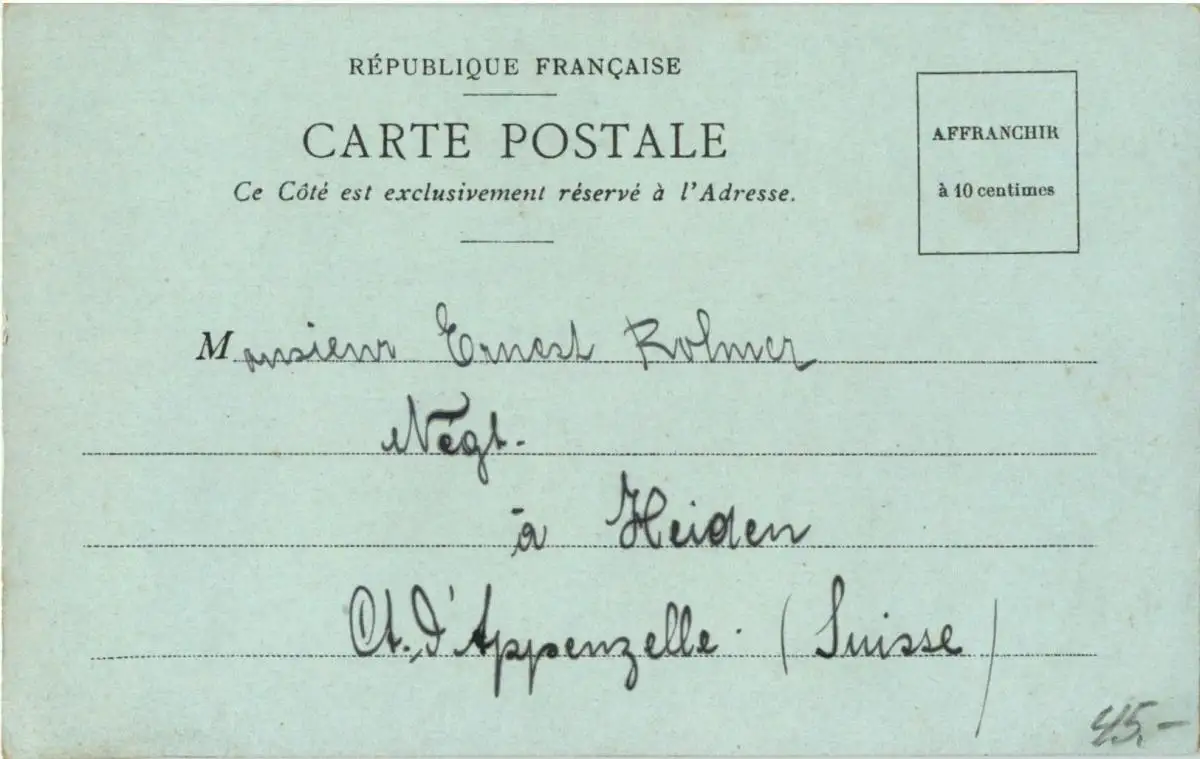 RÉPUBLIQUE FRANÇAISE
CARTE POSTALE
Ce Côté est exclusivement réservé à l'Adresse.
AFFRANCHIR
à 10 centimes
Monsieur Ernest Rohner
Négt.
à Heiden
Ct. d'Appenzelle. (Suisse)
45.-